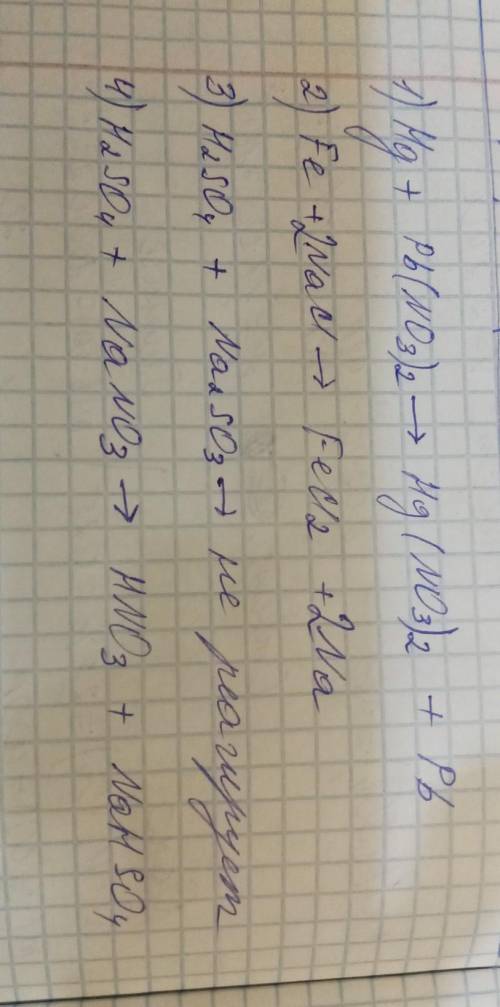 1) Hg + Pb(NO₃)₂ → Hg(NO₃)₂ + Pb
2) Fe + 2NaCl → FeCl₂ + 2Na
3) H₂SO₄ + Na₂SO₃ → не реагирует
4) H₂SO₄ + NaNO₃ → HNO₃ + NaHSO₄